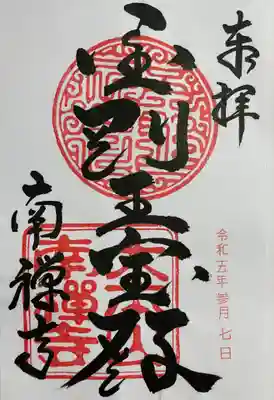 奉拝
金剛王宝殿
南禅寺
令和五年参月七日
南禅寺